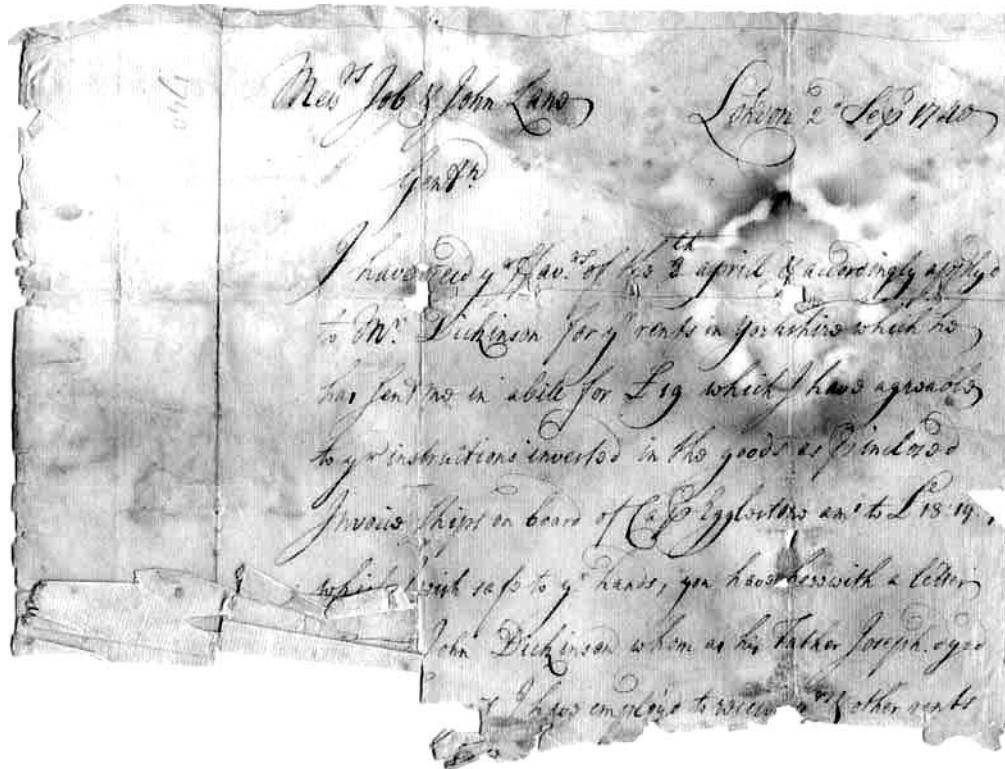 Mess.rs Job & John Lane London 2d Sepr 1740
Gentn.
I have recd yr ffav.rs of the 3th april & accordingly apply'd
to Mr. Dickinson for yr rents in Yorkshire which he
has sent me in a bill for £19 which I have agreable
to yr instructions invested in the goods as p inclosed
Invoice ships on board of Capt Egglestone amt to £18:19
which I wish safe to yr hands, you have herewith a letter
John Dickinson whom as his Father Joseph dyed
I have employ'd to receive yr & other rents
1740